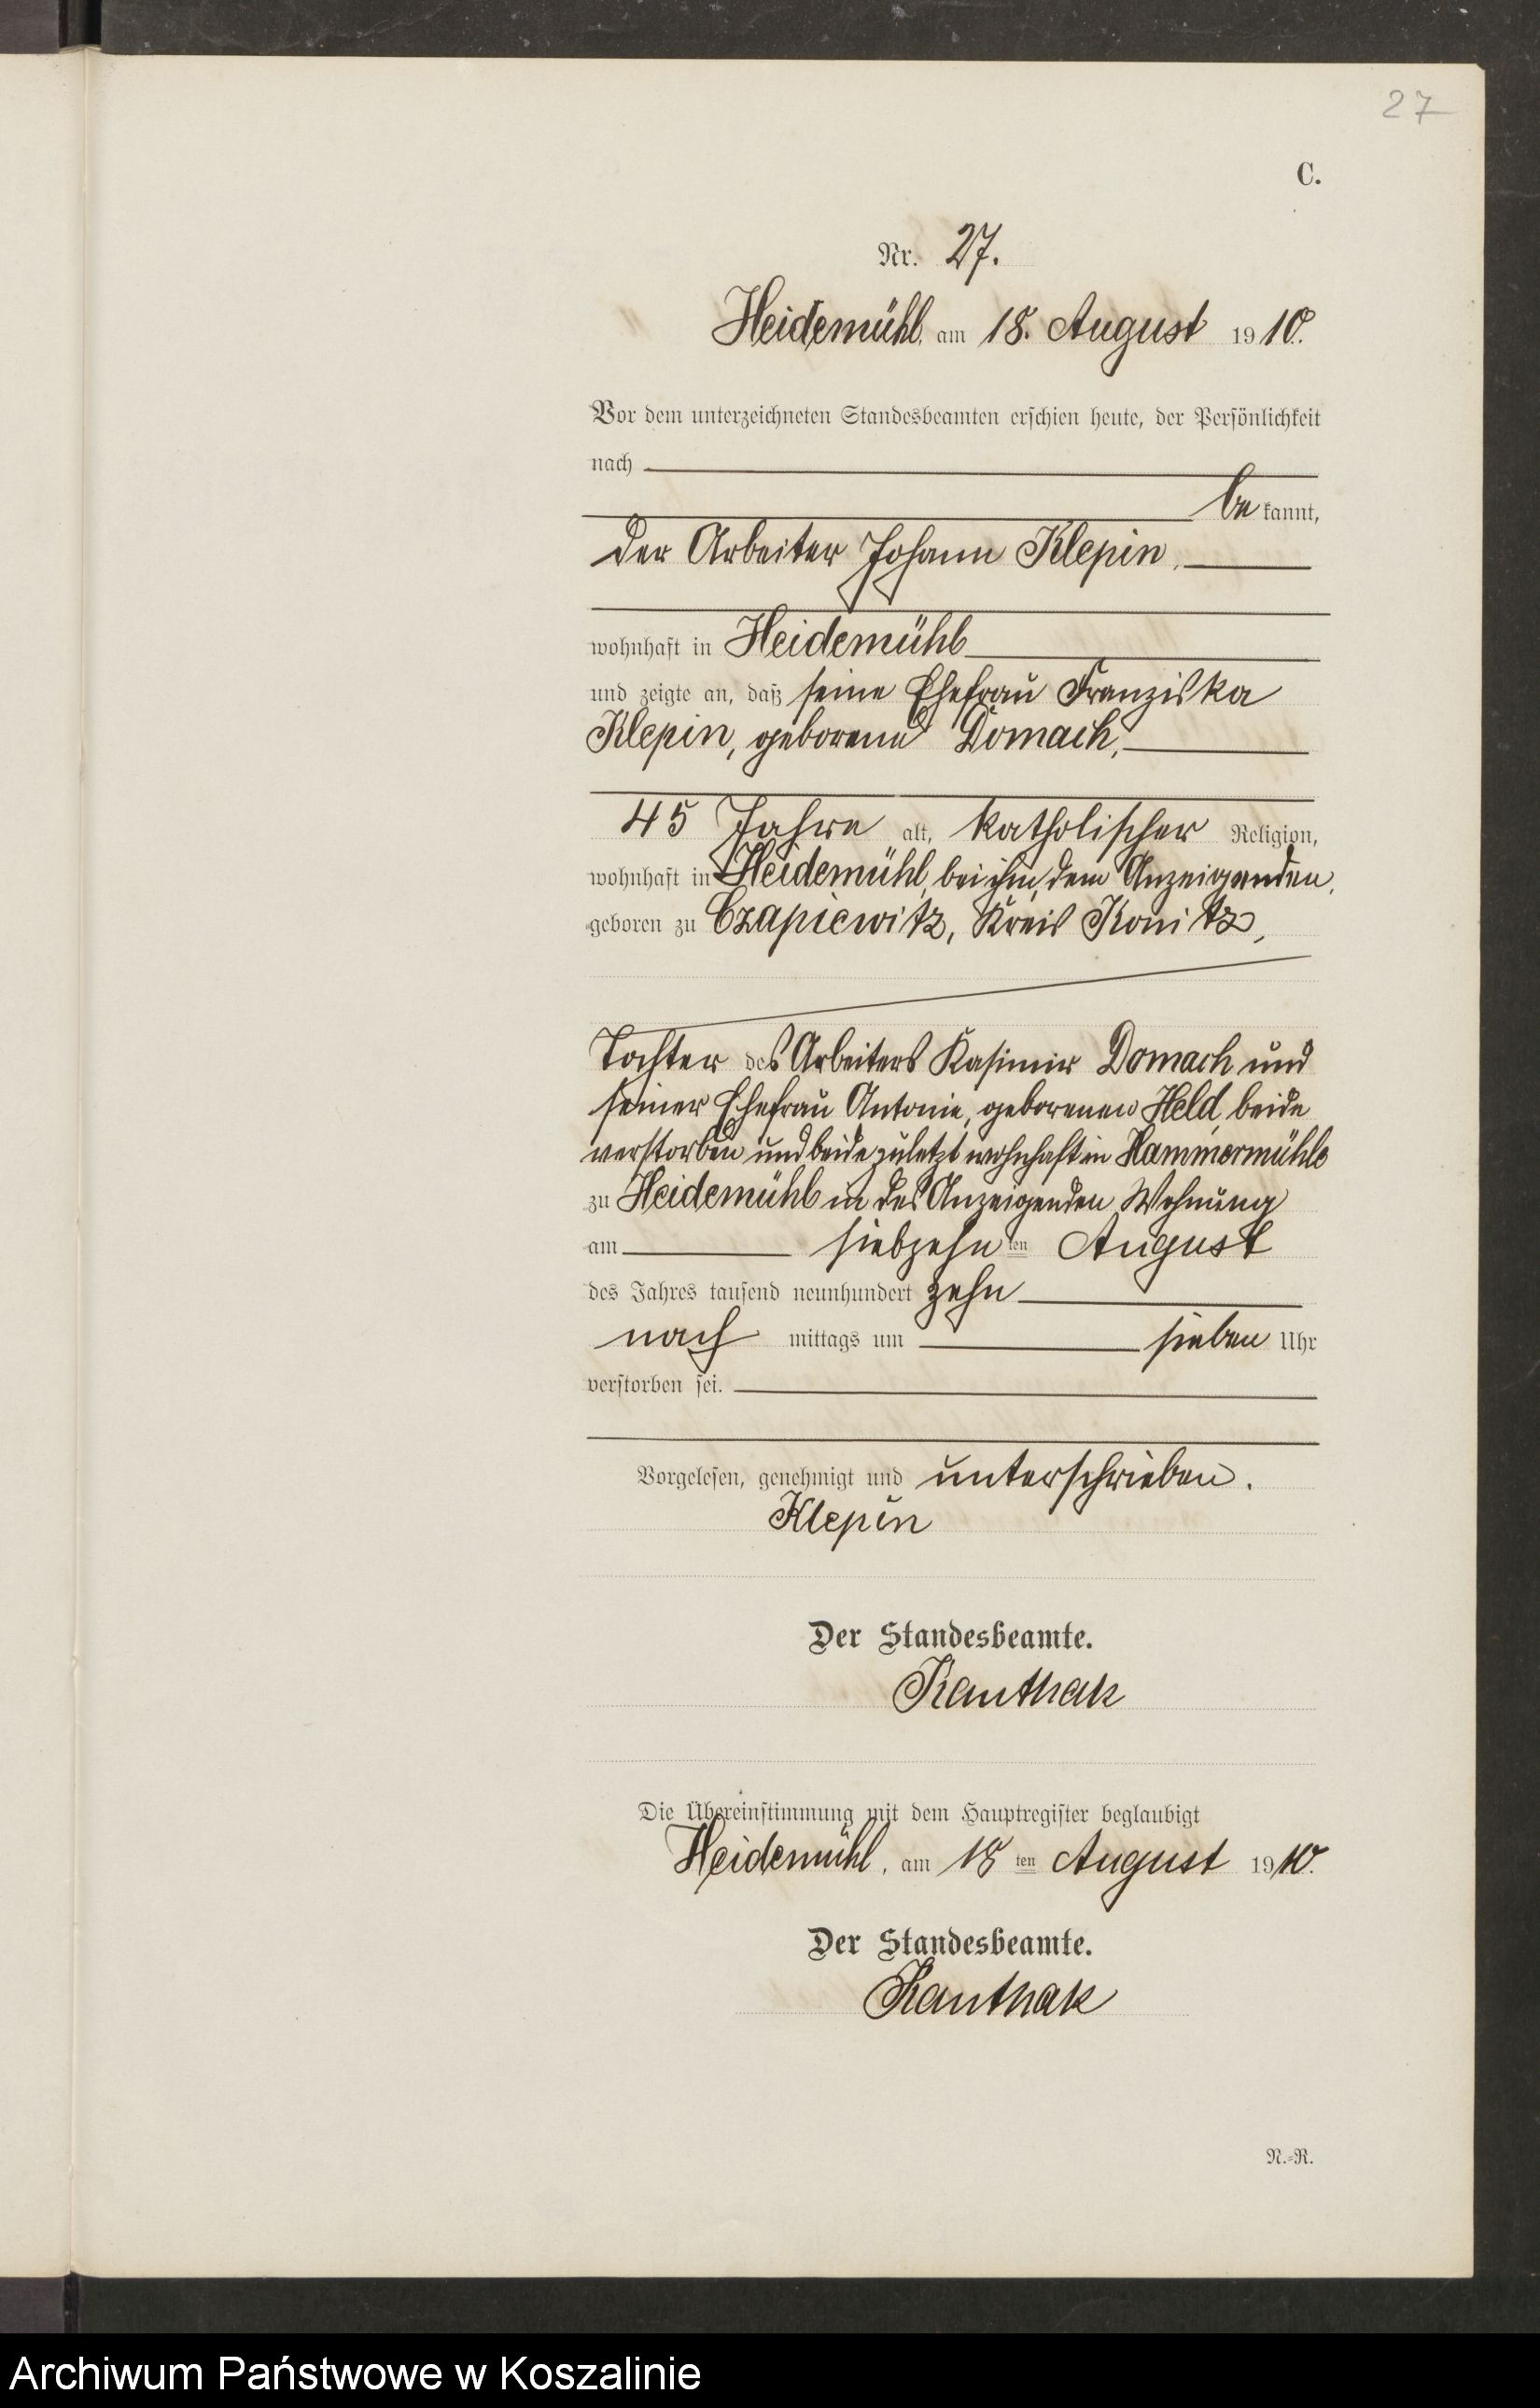 27
C.
Nr. 27.
Heidemühl, am 18. August 1910.
Vor dem unterzeichneten Standesbeamten erschien heute, der Persönlichkeit
nach
be kannt,
der Arbeiter Johann Klepin,
wohnhaft in Heidemühl
und zeigte an, daß seine Ehefrau Franziska
Klepin, geborene Domach,
45 Jahre alt, katholischer Religion,
wohnhaft in Heidemühl, bei ihm, dem Anzeigenden,
geboren zu Czapiewitz, Kreis Konitz,
Tochter des Arbeiters Kasimir Domach und
seiner Ehefrau Antonie, geborenen Held, beide
verstorben und beide zuletzt wohnhaft in Hammermühle
zu Heidemühl in des Anzeigenden Wohnung
am siebzehn ten August
des Jahres tausend neunhundert zehn
nach mittags um sieben Uhr
verstorben sei.
Vorgelesen, genehmigt und unterschrieben.
Klepin
Der Standesbeamte.
Kanthak
Die Übereinstimmung mit dem Hauptregister beglaubigt
Heidemühl, am 18 ten August 1910.
Der Standesbeamte.
Kanthak
N.-R.
Archiwum Państwowe w Koszalinie